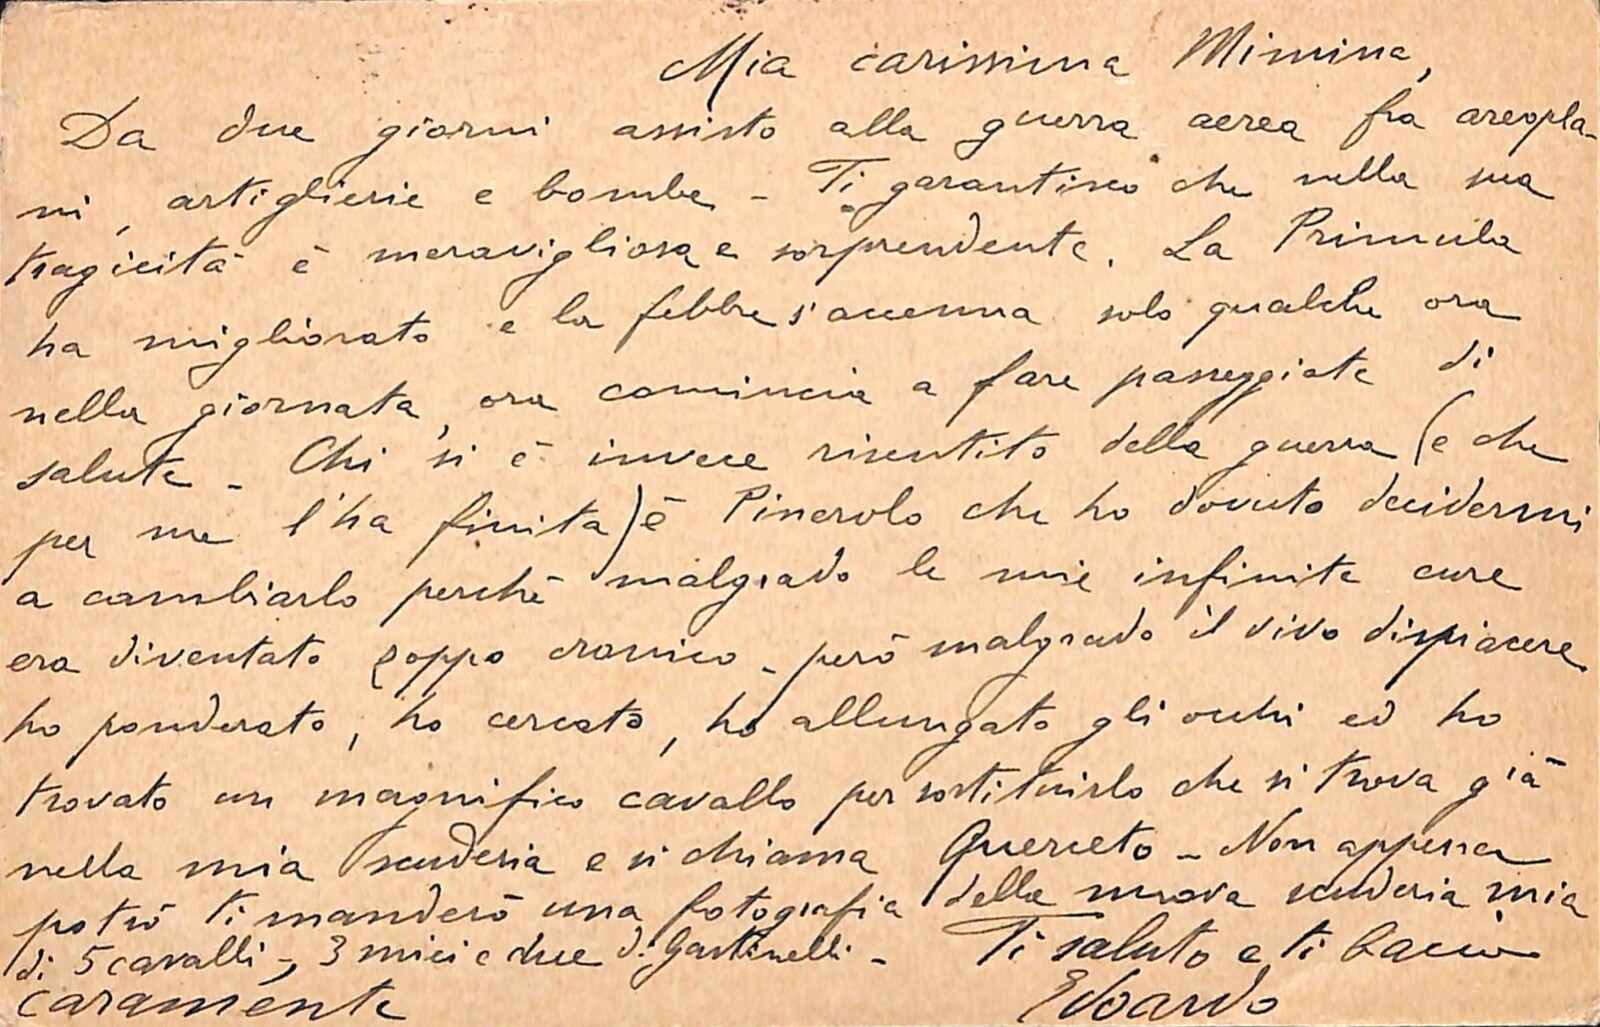 Mia carissima Mimina,
Da due giorni assisto alla guerra aerea fra areopla-
ni, artiglierie e bombe - Ti garantisco che nella sua
tragicità è meravigliosa e sorprendente. La Primula
ha migliorato e la febbre s'accenna solo qualche ora
nella giornata, ora comincia a fare passeggiate di
salute - Chi si è invece risentito della guerra (e che
per me l'ha finita) è Pinerolo che ho dovuto decidermi
a cambiarlo perchè malgrado le mie infinite cure
era diventato zoppo cronico - però malgrado il vivo dispiacere
ho ponderato, ho cercato, ho allungato gli occhi ed ho
trovato un magnifico cavallo per sostituirlo che si trova già
nella mia scuderia e si chiama Querceto - Non appena
potrò ti manderò una fotografia della nuova scuderia mia
di 5 cavalli -, 3 miei e due di Gastinelli - Ti saluto e ti bacio
caramente Edoardo